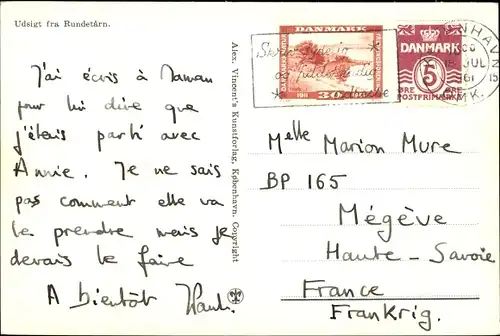 Udsigt fra Rundetårn.
J'ai écris à Maman
pour lui dire que
j'étais parti avec
Annie. Je ne sais
pas comment elle va
le prendre mais je
devais le faire
A bientôt
Alex. Vincent's Kunstforlag, København. Copyright
DANMARK
1911
30
DANMARK
5
ØRE ØRE
POSTFRIMÆRKE
Skriv tyde
og fuldstændig
JUL
61
Melle Marion Mure
BP 165
Mégève
Haute-Savoie
France
Frankrig.